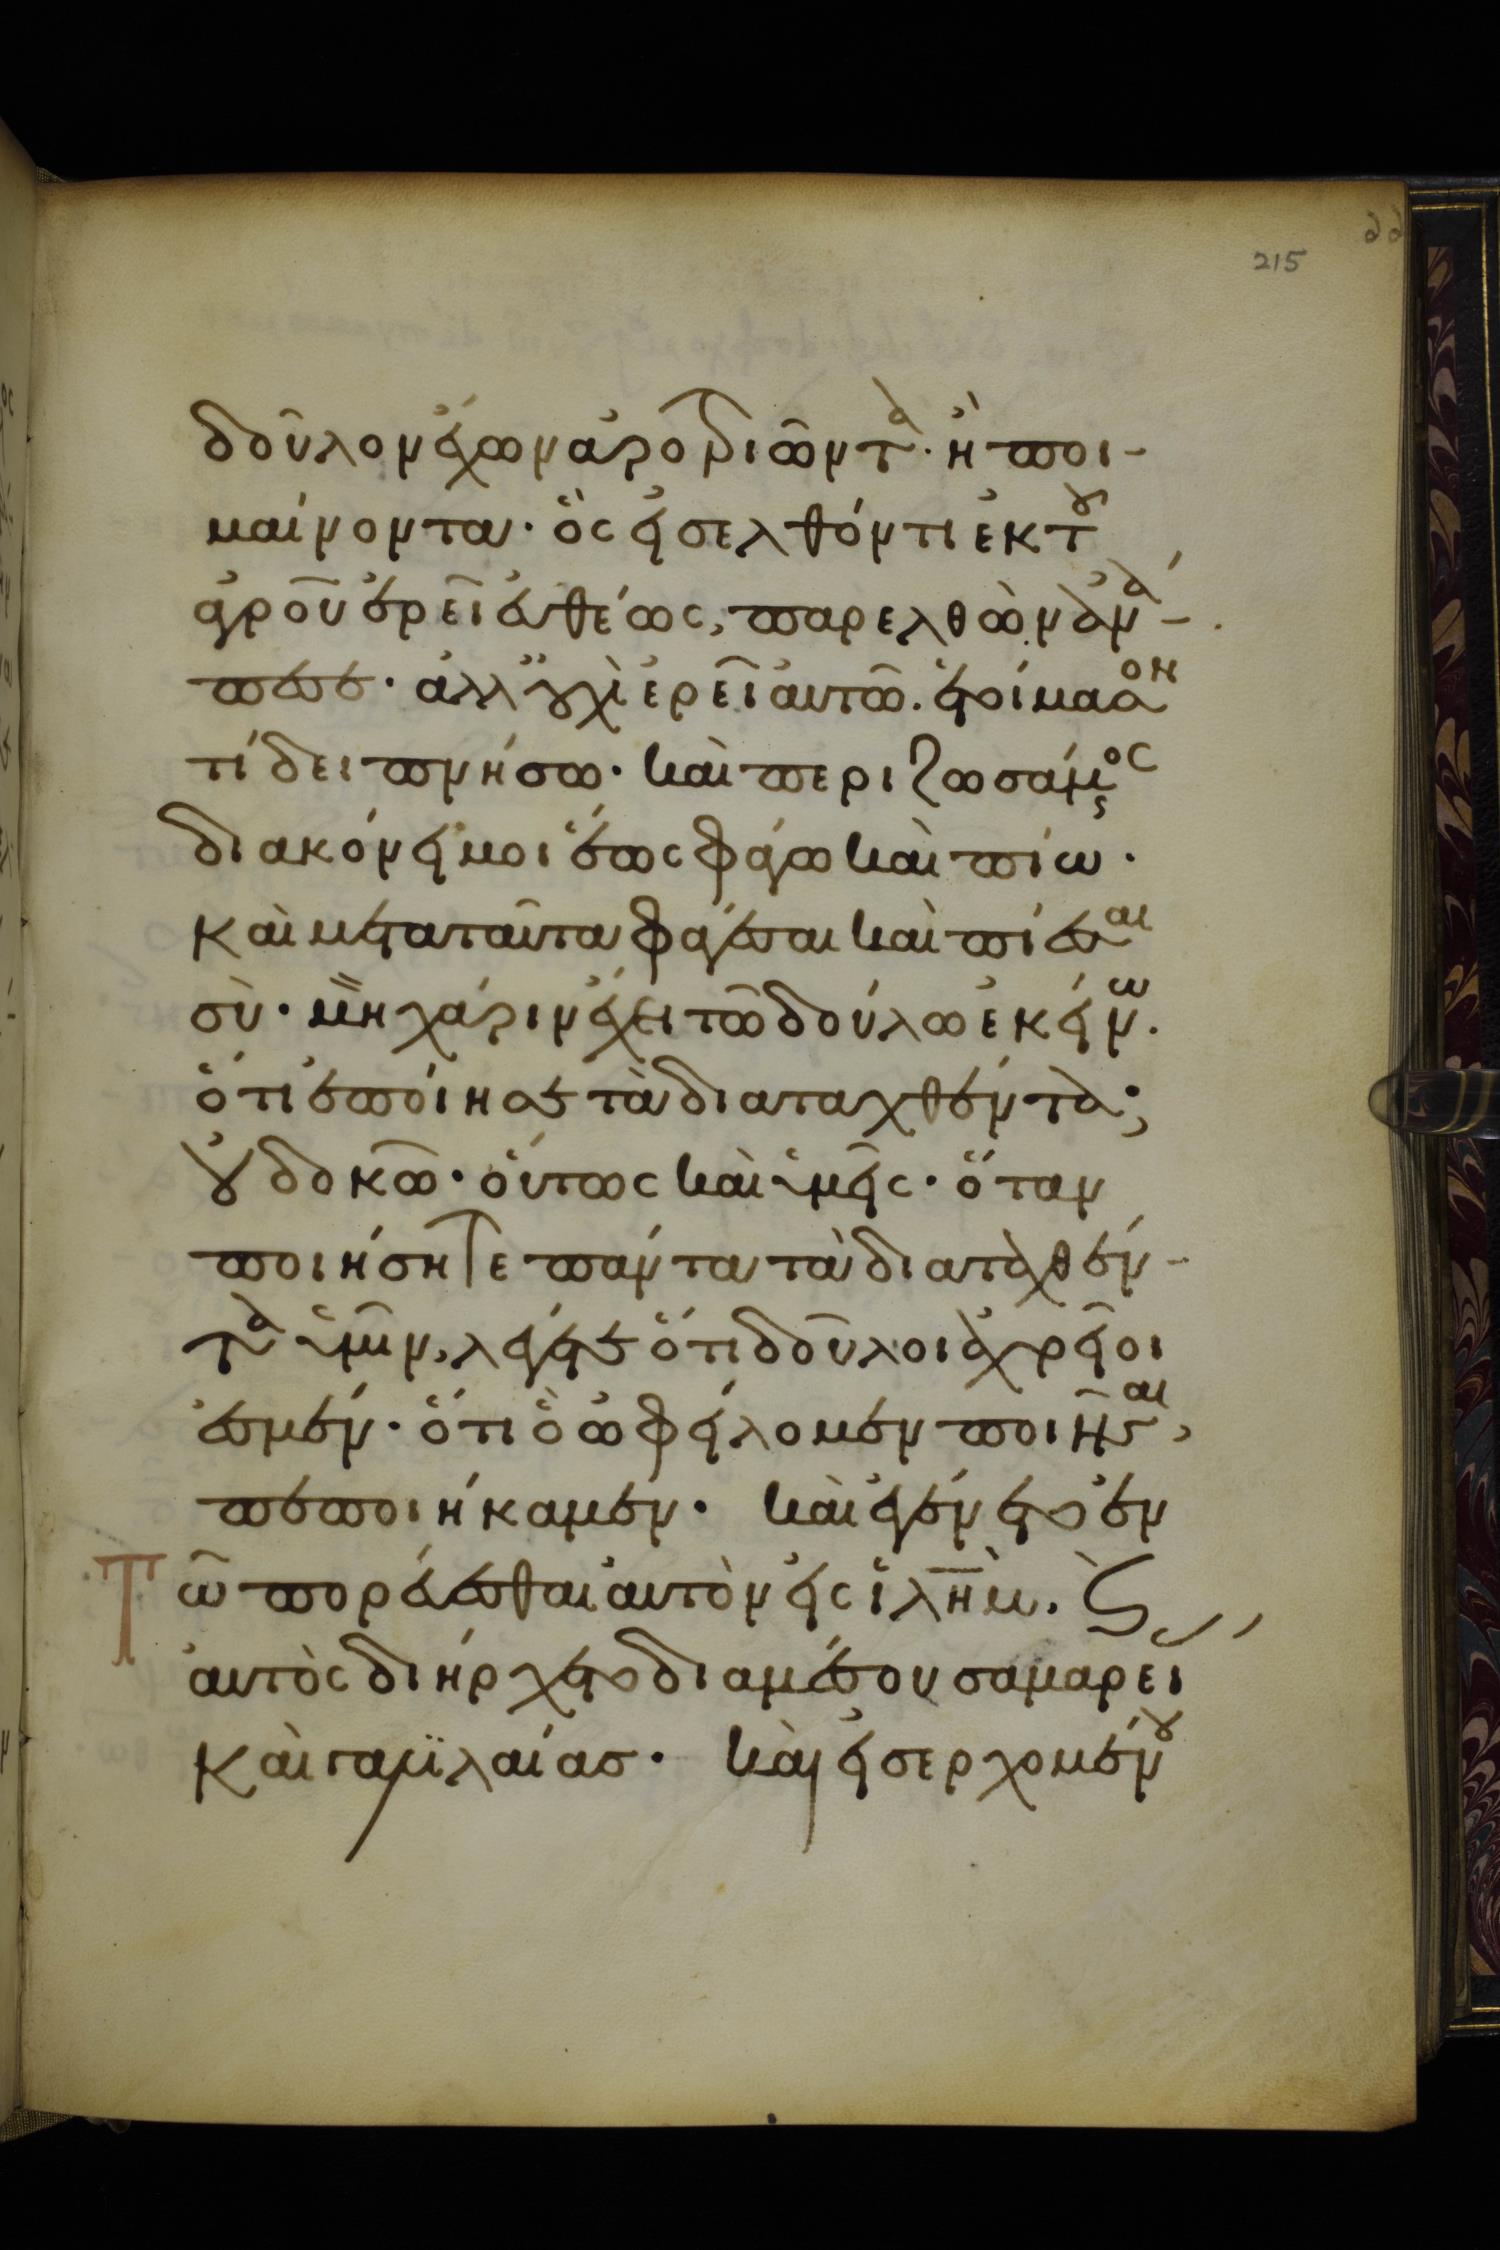 215
δοῦλον ἔχων ἀροτριῶντα· ἢ ποι-
μαίνοντα· ὃς εἰσελθόντι ἐκ τοῦ
ἀγροῦ ἐρεῖ εὐθέως, παρελθὼν ἀνά-
πεσε· ἀλλ οὐχὶ ἐρεῖ αὐτῶ. ἑτοίμασον
τί δειπνήσω· καὶ περιζωσάμενος
διακόνει μοι ἕως φάγω καὶ πίω·
καὶ μετα ταῦτα φάγεσαι καὶ πίεσαι
σύ· μὴ χάριν ἔχει τῶ δούλω ἐκείνω.
ὅτι ἐποίησε τὰ διαταχθέντα;
οὐ δοκῶ· οὕτως καὶ ὑμεῖς· ὅταν
ποιήσητε πάντα τὰ διαταχθέν-
τα ὑμῖν, λέγετε ὅτι δοῦλοι ἀχρεῖοι
ἐσμέν· ὅτι ὃ ὠφείλομεν ποιῆσαι,
πεποιήκαμεν· καὶ ἐγένετο ἐν
Τῶ πορεύεσθαι αὐτὸν εἰς ἱλὴμ. καὶ
αὐτὸς διήρχετο δια μέσου σαμαρεί
καὶ γαλιλαίας· καὶ εἰσερχομένου